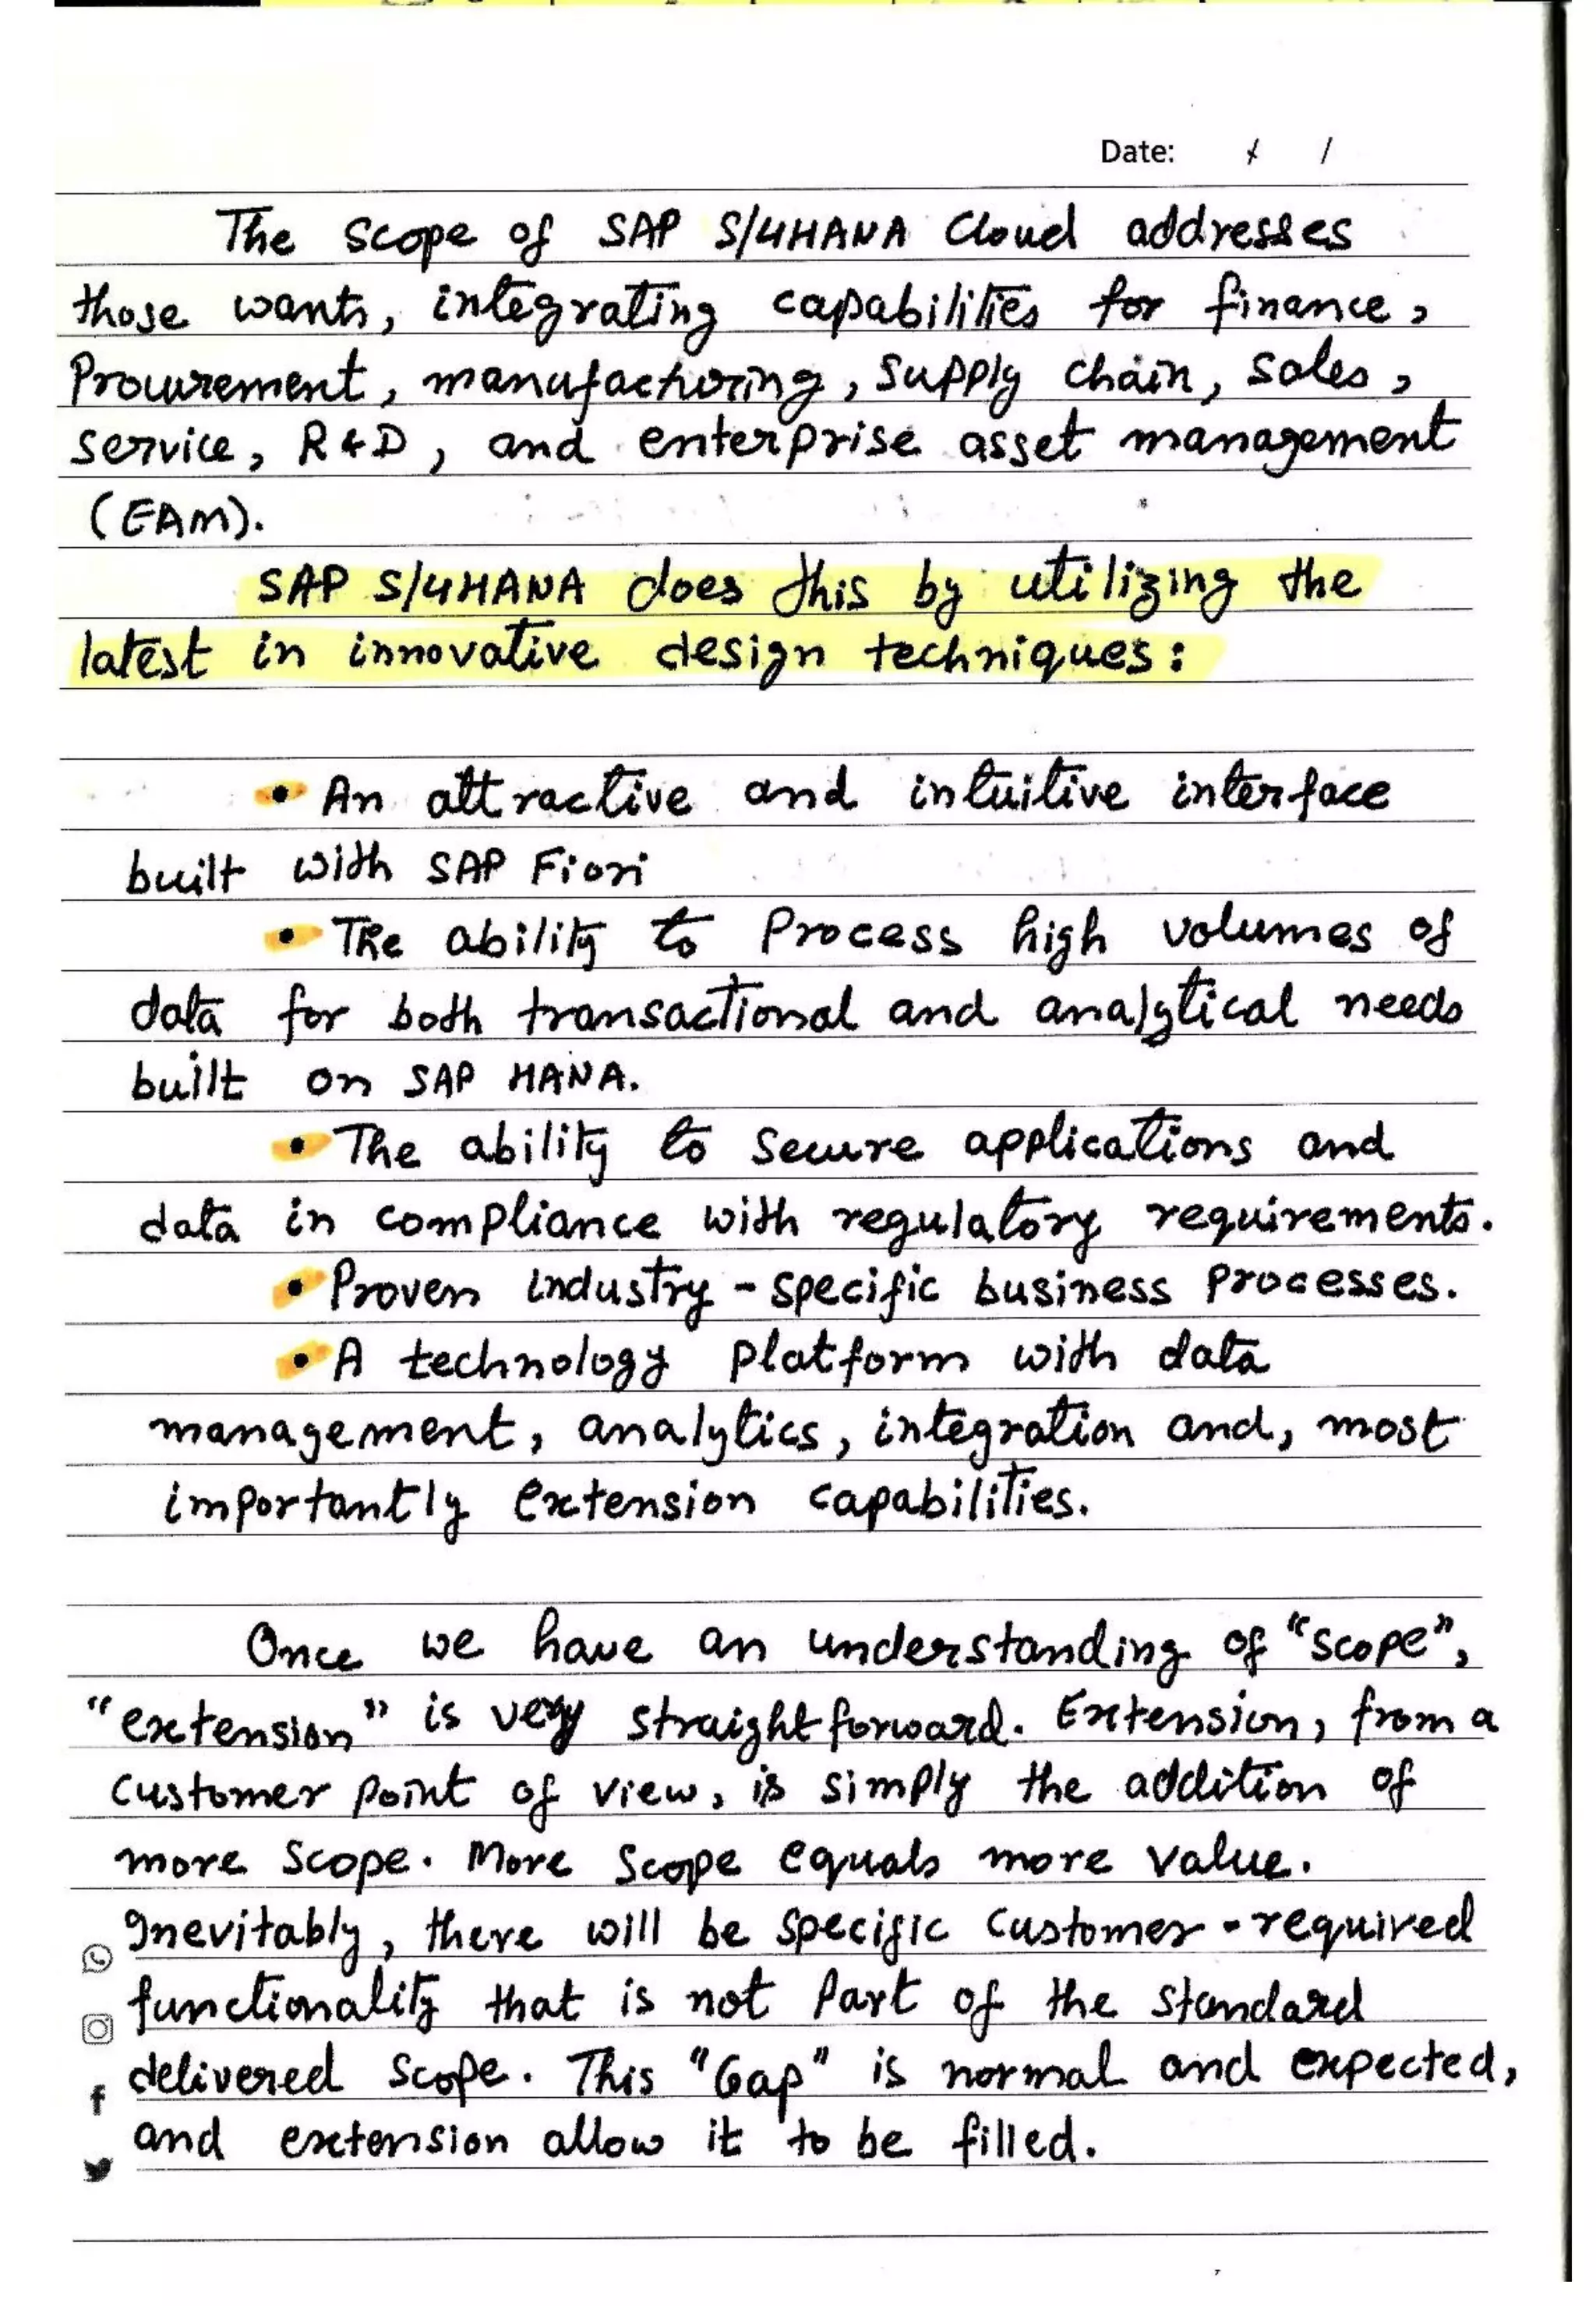 Date: / /
The scope of SAP S/4HANA Cloud addresses
those wants, integrating capabilities for finance,
Procurement, manufacturing, supply chain, sales,
service, R&D, and enterprise asset management
(EAM).
SAP S/4HANA does this by utilizing the
latest in innovative design techniques:
• An attractive and intuitive interface
built with SAP Fiori
• The ability to Process high volumes of
data for both transactional and analytical needs
built on SAP HANA.
• The ability to secure applications and
data in compliance with regulatory requirements.
• Proven industry-specific business processes.
• A technology Platform with data
management, analytics, integration and, most
importantly extension capabilities.
Once we have an understanding of "scope",
"extension" is very straightforward. Extension, from a
customer point of view, is simply the addition of
more scope. More scope equals more value.
Inevitably, there will be specific customer-required
functionality that is not Part of the standard
delivered scope. This "Gap" is normal and expected,
and extension allow it to be filled.